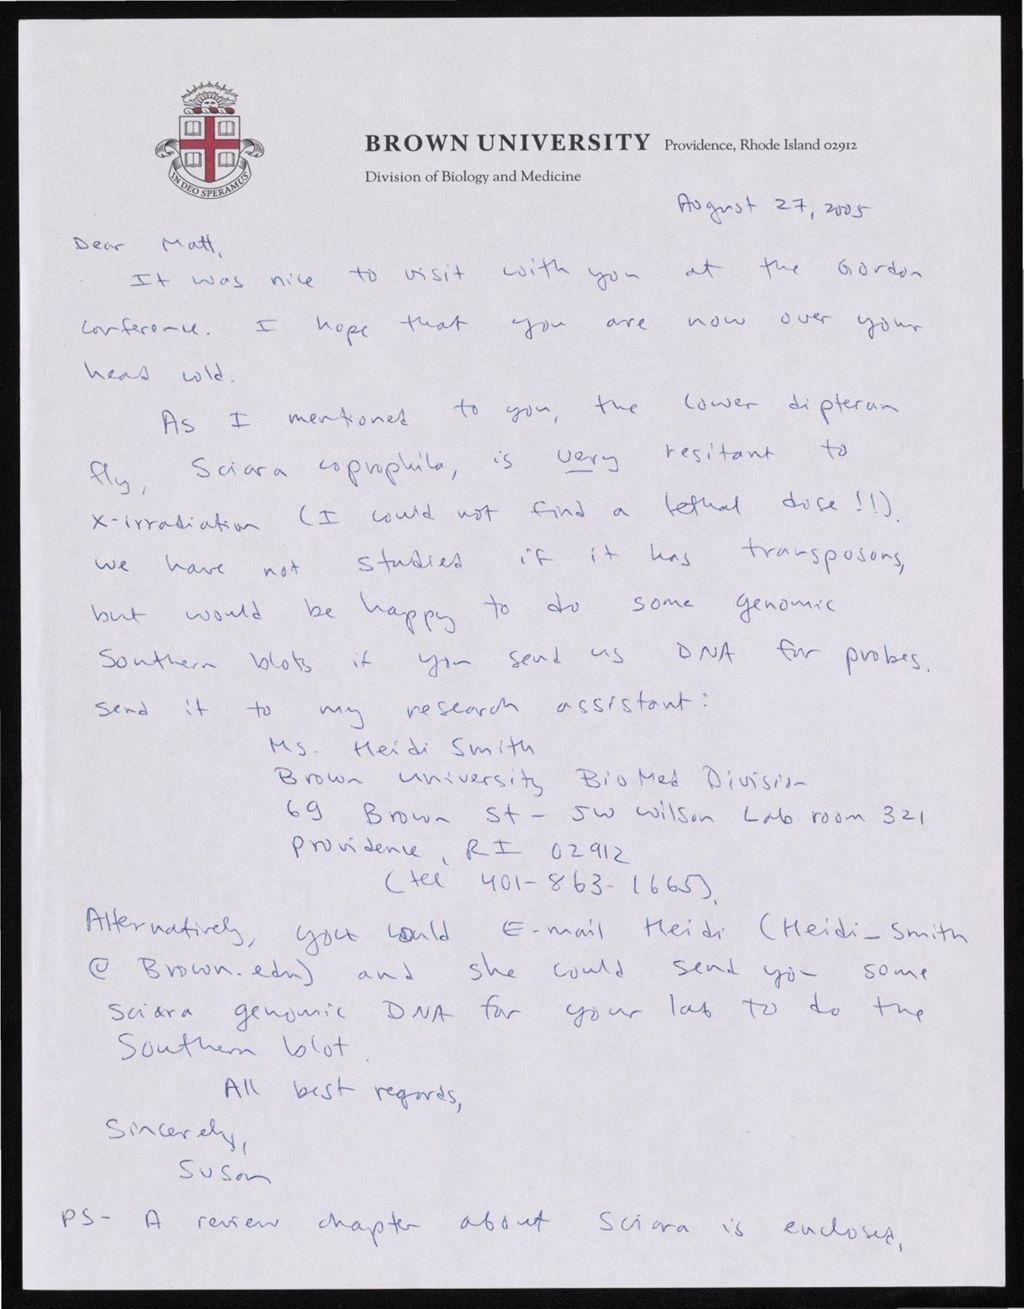 IN DEO SPERAMUS
BROWN UNIVERSITY Providence, Rhode Island 02912
Division of Biology and Medicine
August 27, 2005
Dear Matt,
It was nice to visit with you at the Gordon
conference. I hope that you are now over your
head cold.
As I mentioned to you, the lower dipteran
fly, Sciara coprophila, is very resitant to
x-irradiation (I could not find a lethal dose!!).
we have not studied if it has transposons,
but would be happy to do some genomic
Southern blots if you send us DNA for probes.
send it to my research assistant:
Ms. Heidi Smith
Brown University BioMed Division
69 Brown St - JW Wilson Lab room 321
Providence, RI 02912
(tel 401-863-1665).
Alternatively, you could E-mail Heidi (Heidi_Smith
@ Brown.edu) and she could send you some
Sciara genomic DNA for your lab to do the
Southern blot.
All best regards,
Sincerely,
Susan
PS- A review chapter about Sciara is enclosed.